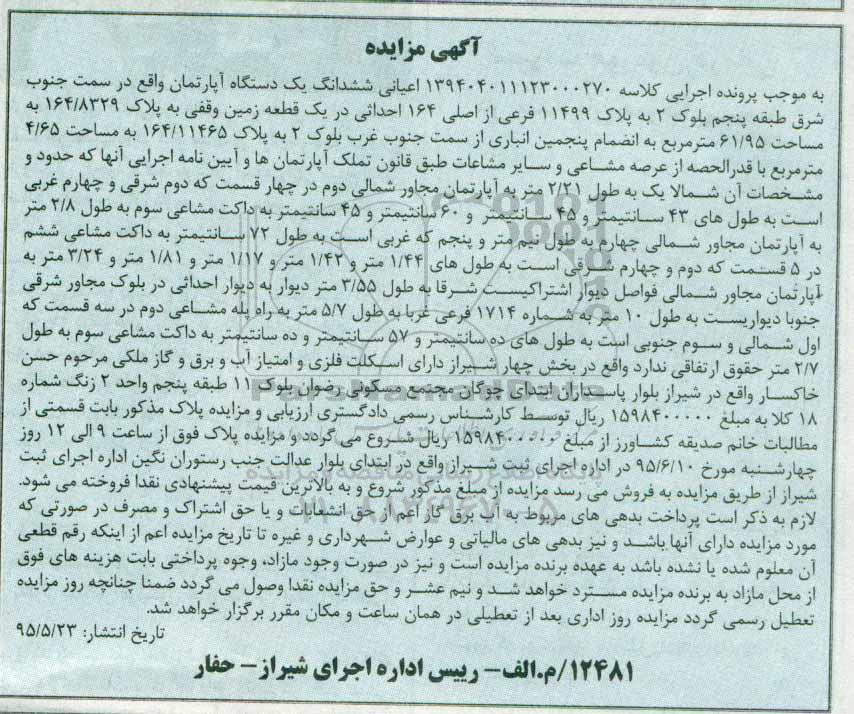 آگهی مزایده
به موجب پرونده اجرایی کلاسه ۱۳۹۴۰۴۰۱۱۱۲۳۰۰۰۲۷۰ اعیانی ششدانگ یک دستگاه آپارتمان واقع در سمت جنوب
شرق طبقه پنجم بلوک ۲ به پلاک ۱۱۴۹۹ فرعی از اصلی ۱۶۴ احداثی در یک قطعه زمین وقفی به پلاک ۱۶۴/۸۳۲۹ به
مساحت ۶۱/۹۵ مترمربع به انضمام پنجمین انباری از سمت جنوب غرب بلوک ۲ به پلاک ۱۶۴/۱۱۴۶۵ به مساحت ۴/۶۵
مترمربع با قدرالحصه از عرصه مشاعی و سایر مشاعات طبق قانون تملک آپارتمان ها و آیین نامه اجرایی آنها که حدود و
مشخصات آن شمالا یک به طول ۲/۲۱ متر به آپارتمان مجاور شمالی دوم در چهار قسمت که دوم شرقی و چهارم غربی
است به طول های ۴۳ سانتیمتر و ۴۵ سانتیمتر و ۶۰ سانتیمتر و ۴۵ سانتیمتر به داکت مشاعی سوم به طول ۲/۸ متر
به آپارتمان مجاور شمالی چهارم به طول نیم متر و پنجم که غربی است به طول ۷۲ سانتیمتر به داکت مشاعی ششم
در ۵ قسمت که دوم و چهارم شرقی است به طول های ۱/۴۴ متر و ۱/۴۲ متر و ۱/۱۷ متر و ۱/۸۱ متر و ۳/۲۴ متر به
آپارتمان مجاور شمالی فواصل دیوار اشتراکیست شرقا به طول ۳/۵۵ متر دیوار به دیوار احداثی در بلوک مجاور شرقی
جنوبا دیواریست به طول ۱۰ متر به شماره ۱۷۱۴ فرعی غربا به طول ۵/۷ متر به راه پله مشاعی دوم در سه قسمت که
اول شمالی و سوم جنوبی است به طول های ده سانتیمتر و ۵۷ سانتیمتر و ده سانتیمتر به داکت مشاعی سوم به طول
۲/۷ متر حقوق ارتفاقی ندارد واقع در بخش چهار شیراز دارای اسکلت فلزی و امتیاز آب و برق و گاز ملکی مرحوم حسن
خاکسار واقع در شیراز بلوار پاسداران ابتدای چوگان مجتمع مسکونی رضوان بلوک ۱۱ طبقه پنجم واحد ۲ زنگ شماره
۱۸ کلا به مبلغ ۱۵۹۸۴۰۰۰۰۰ ریال توسط کارشناس رسمی دادگستری ارزیابی و مزایده پلاک مذکور بابت قسمتی از
مطالبات خانم صدیقه کشاورز از مبلغ ۱۵۹۸۴۰۰۰۰۰ ریال شروع می گردد و مزایده پلاک فوق از ساعت ۹ الی ۱۲ روز
چهارشنبه مورخ ۹۵/۶/۱۰ در اداره اجرای ثبت شیراز واقع در ابتدای بلوار عدالت جنب رستوران نگین اداره اجرای ثبت
شیراز از طریق مزایده به فروش می رسد مزایده از مبلغ مذکور شروع و به بالاترین قیمت پیشنهادی نقدا فروخته می شود.
لازم به ذکر است پرداخت بدهی های مربوط به آب برق گاز اعم از حق انشعابات و یا حق اشتراک و مصرف در صورتی که
مورد مزایده دارای آنها باشد و نیز بدهی های مالیاتی و عوارض شهرداری و غیره تا تاریخ مزایده اعم از اینکه رقم قطعی
آن معلوم شده یا نشده باشد به عهده برنده مزایده است و نیز در صورت وجود مازاد، وجوه پرداختی بابت هزینه های فوق
از محل مازاد به برنده مزایده مسترد خواهد شد و نیم عشر و حق مزایده نقدا وصول می گردد ضمنا چنانچه روز مزایده
تعطیل رسمی گردد مزایده روز اداری بعد از تعطیلی در همان ساعت و مکان مقرر برگزار خواهد شد.
تاریخ انتشار: ۹۵/۵/۲۳
۱۲۴۸۱/م.الف- رییس اداره اجرای شیراز- حفار
ParsNamadData